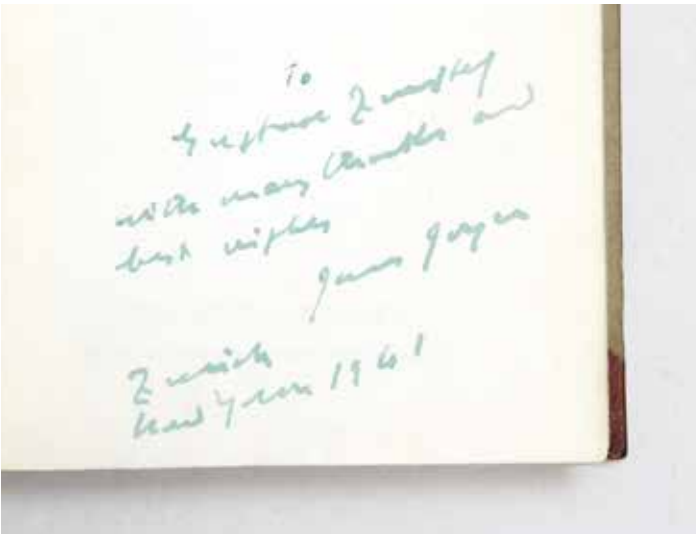 To
Gustave Zumsteg
with many thanks and
best wishes
James Joyce
Zurich
New Year 1941